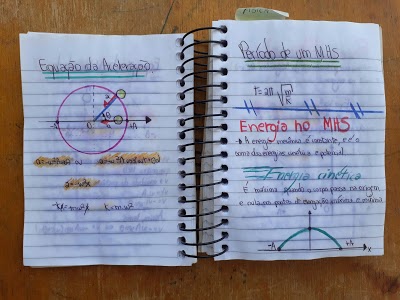 Equação da Aceleração.
θ
a
-A
O
+A
a=-ω²x
K=mω²
Física
Período de um MHS
T=2π √m/K
Energia no MHS
A energia mecânica é constante, e é a
soma das energias cinética e potencial.
Energia cinética
É máxima quando o corpo passa na origem
e nula nos pontos de elongação máxima e mínima
-A
+A
x